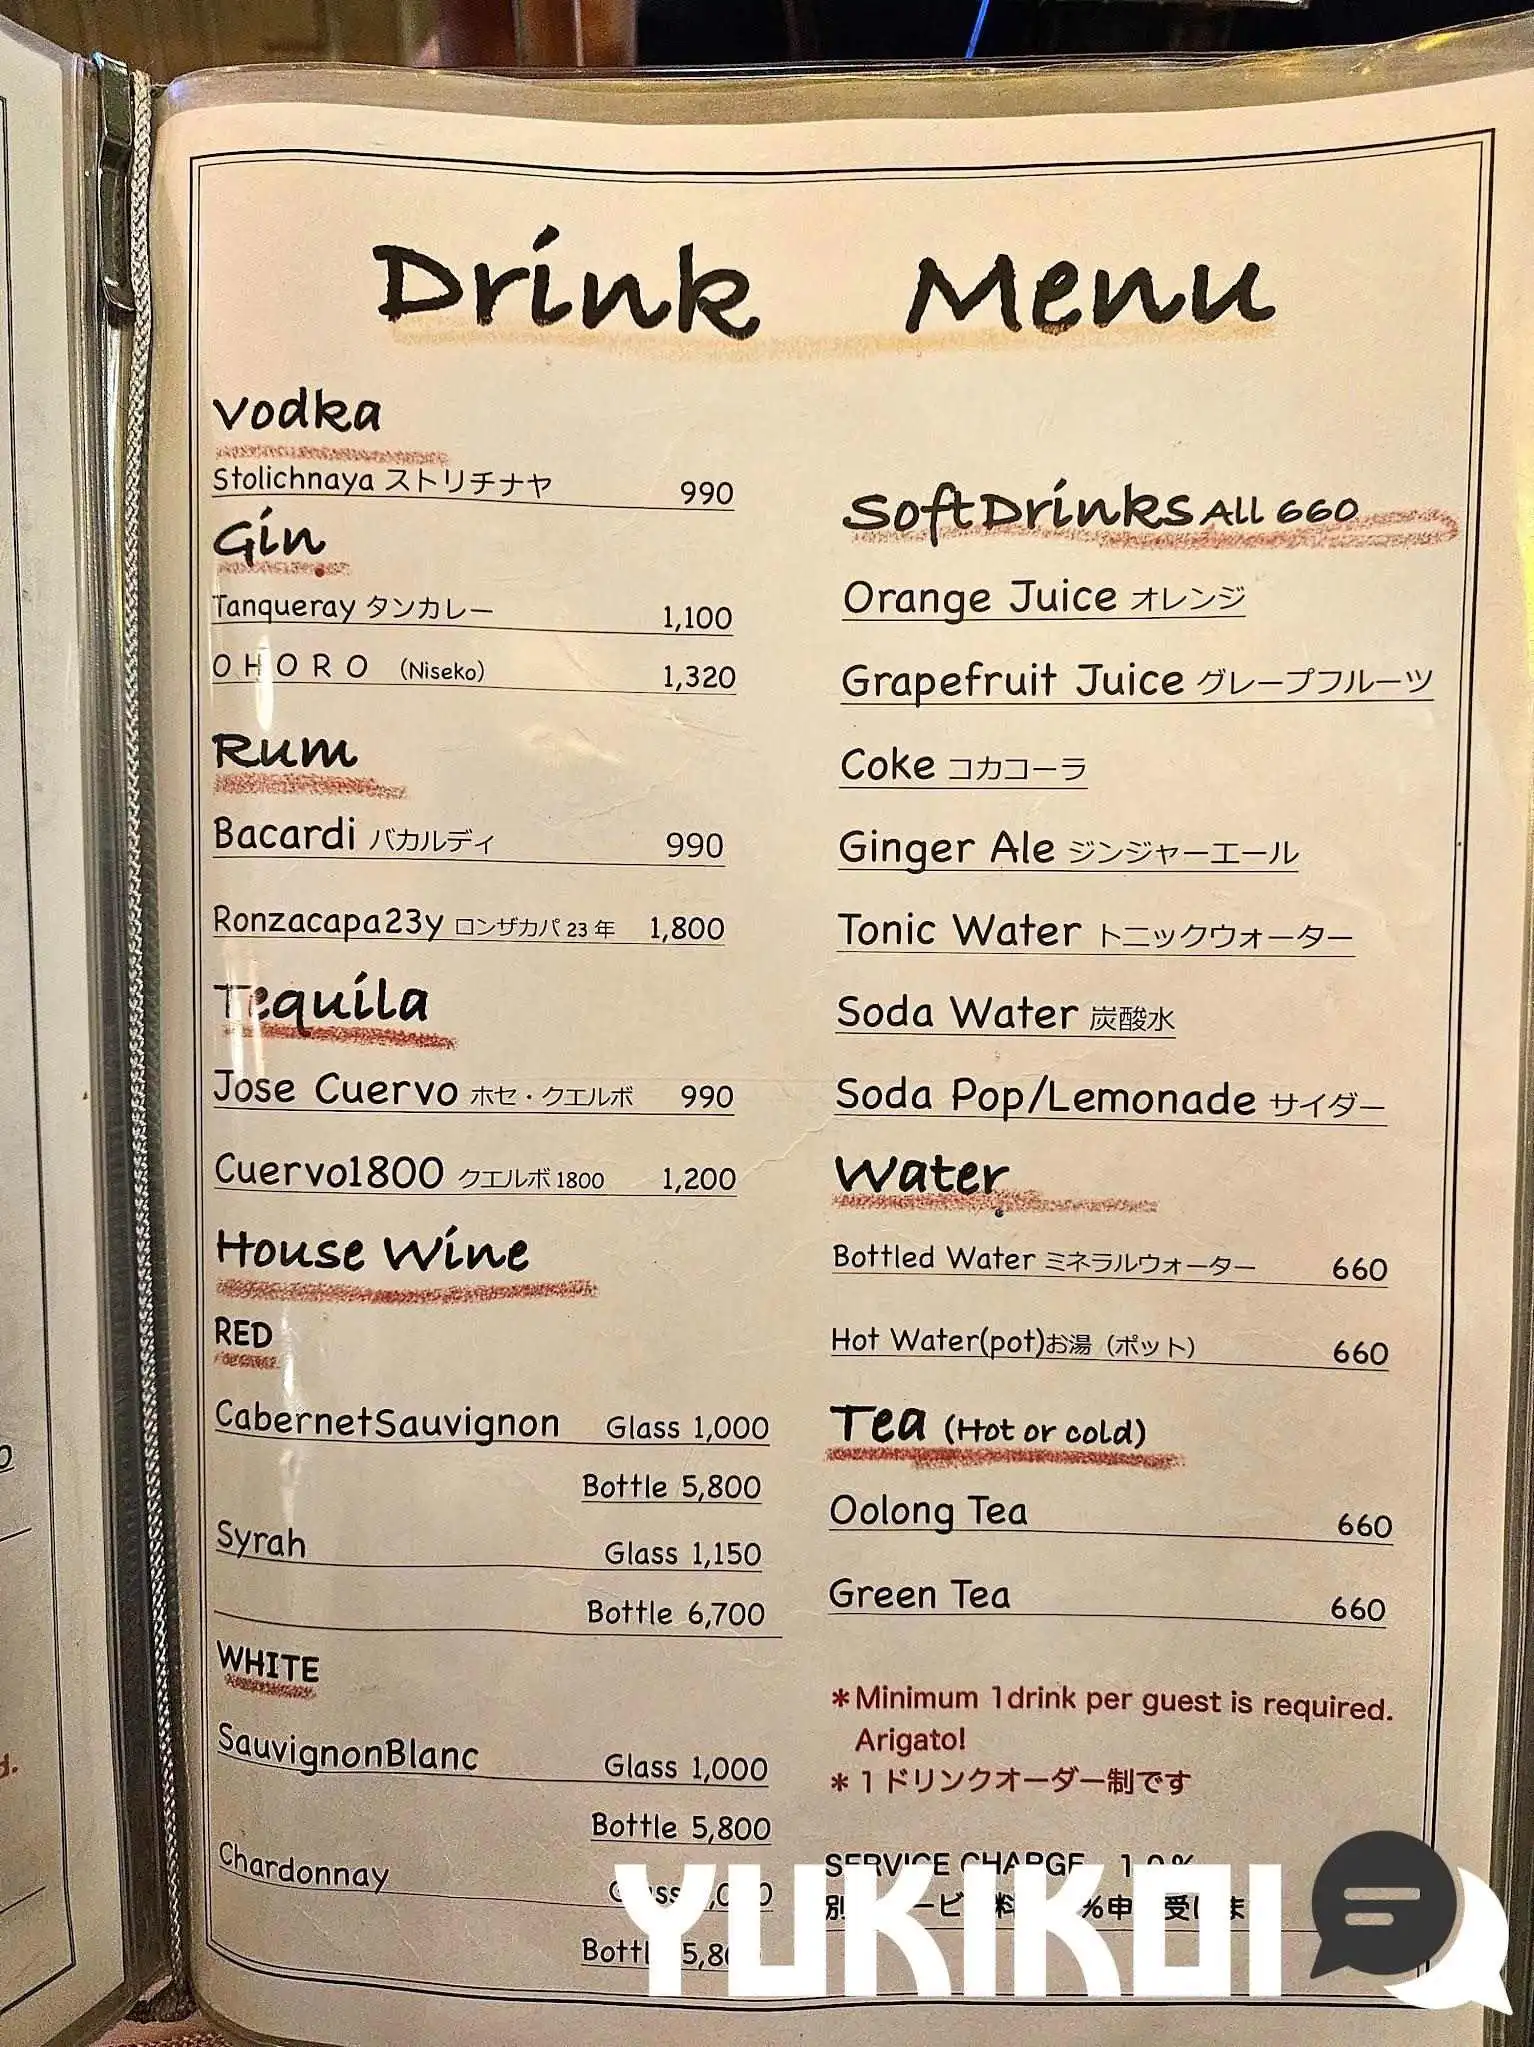 Drink Menu
Vodka
Stolichnaya ストリチナヤ 990
Gin
Tanqueray タンカレー 1,100
OHORO (Niseko) 1,320
Rum
Bacardi バカルディ 990
Ronzacapa23y ロンザカパ 23 年 1,800
Tequila
Jose Cuervo ホセ・クエルボ 990
Cuervo1800 クエルボ 1800 1,200
House Wine
RED
CabernetSauvignon Glass 1,000
Bottle 5,800
Syrah Glass 1,150
Bottle 6,700
WHITE
SauvignonBlanc Glass 1,000
Bottle 5,800
Chardonnay
Soft Drinks All 660
Orange Juice オレンジ
Grapefruit Juice グレープフルーツ
Coke コカコーラ
Ginger Ale ジンジャーエール
Tonic Water トニックウォーター
Soda Water 炭酸水
Soda Pop/Lemonade サイダー
Water
Bottled Water ミネラルウォーター 660
Hot Water(pot)お湯（ポット） 660
Tea (Hot or cold)
Oolong Tea 660
Green Tea 660
*Minimum 1drink per guest is required.
Arigato!
*１ドリンクオーダー制です
SERVICE CHARGE 10%
YUKIKOI